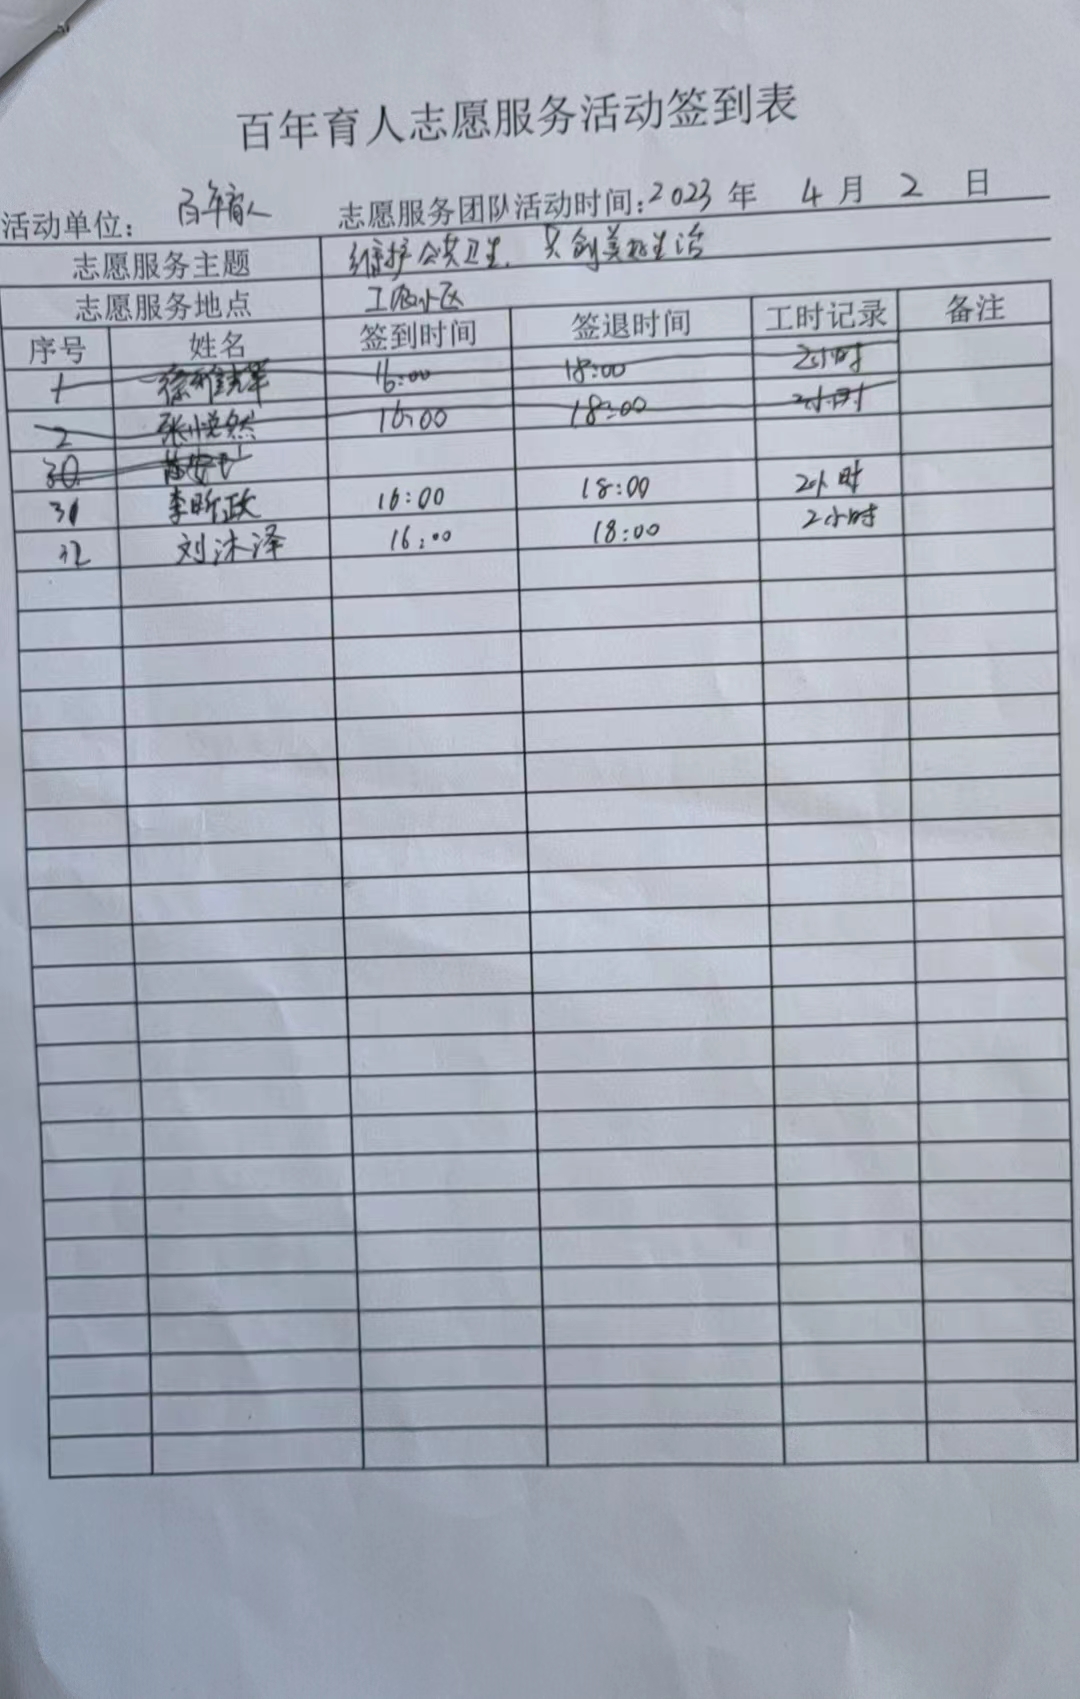 百年育人志愿服务活动签到表
活动单位: 百年育人 志愿服务团队活动时间:2023 年 4 月 2 日
志愿服务主题 维护公共卫生,共创美好生活
志愿服务地点 小区
序号 姓名 签到时间 签退时间 工时记录 备注
1 16:00 18:00 2小时
2 张悦然 16:00 18:00 2小时
30
31 李昕政 16:00 18:00 2小时
32 刘沐泽 16:00 18:00 2小时